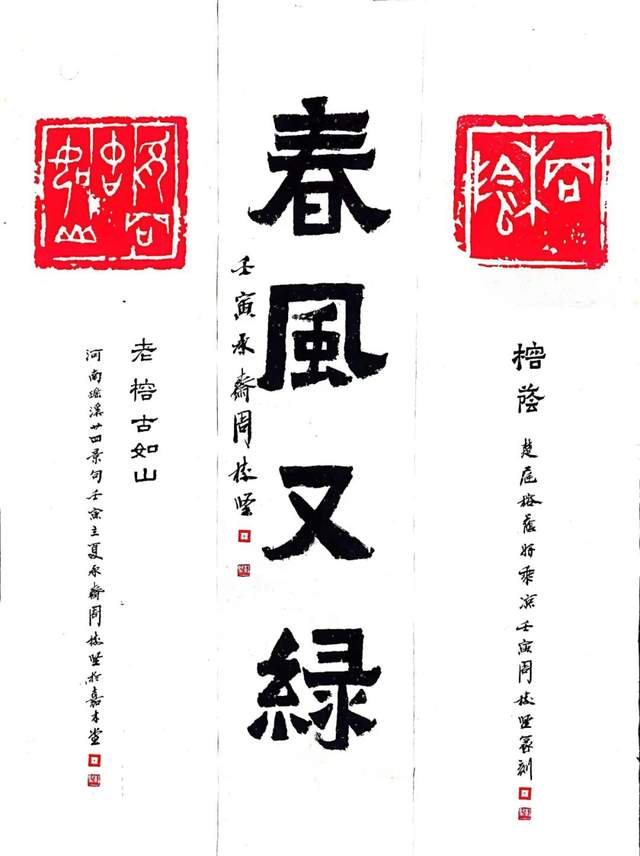 榕陰
榕蔭
楚庭榕蔭好乘凉壬寅周堅篆刻
春風又緑
壬寅承齋周堅
老榕古如山
老榕古如山
河南瑤溪廿四景句壬寅立夏承齋周堅於嘉木堂